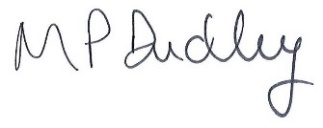 M P Dudley